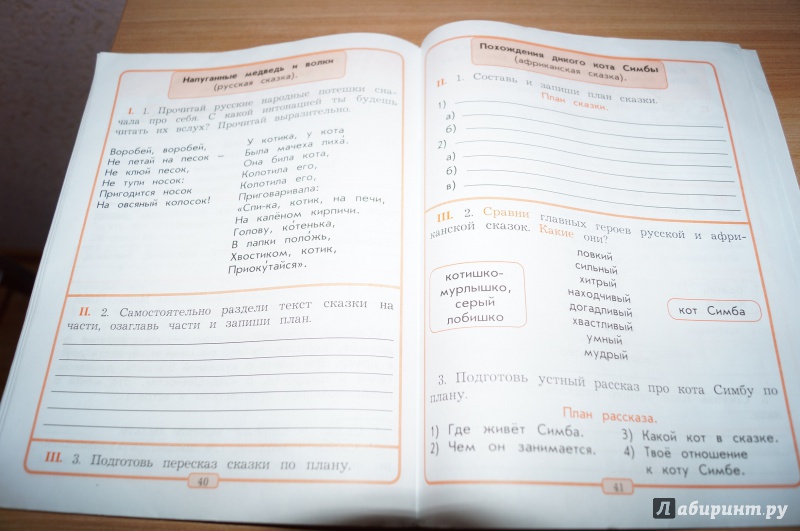 Напуганные медведь и волки
(русская сказка).
I. 1. Прочитай русские народные потешки сна-
чала про себя. С какой интонацией ты будешь
читать их вслух? Прочитай выразительно.
Воробей, воробей,
Не летай на песок –
Не клюй песок,
Не тупи носок:
Пригодится носок
На овсяный колосок!
У котика, у кота
Была мачеха лиха́.
Она била кота,
Колотила его,
Колотила его,
Приговаривала:
«Спи-ка, котик, на печи,
На калёном кирпичи.
Голову, котенька,
В лапки поло́жь,
Хвостиком, котик,
Приоку́тайся».
II. 2. Самостоятельно раздели текст сказки на
части, озаглавь части и запиши план.
III. 3. Подготовь пересказ сказки по плану.
40
Похождения дикого кота Симбы
(африканская сказка).
II. 1. Составь и запиши план сказки.
План сказки.
1)
а)
б)
2)
а)
б)
в)
III. 2. Сравни главных героев русской и афри-
канской сказок. Какие они?
котишко-
мурлышко,
серый
лобишко
ловкий
сильный
хитрый
находчивый
догадливый
хвастливый
умный
мудрый
кот Симба
3. Подготовь устный рассказ про кота Симбу по
плану.
План рассказа.
1) Где живёт Симба.
2) Чем он занимается.
3) Какой кот в сказке.
4) Твоё отношение
к коту Симбе.
41
Лабиринт.ру